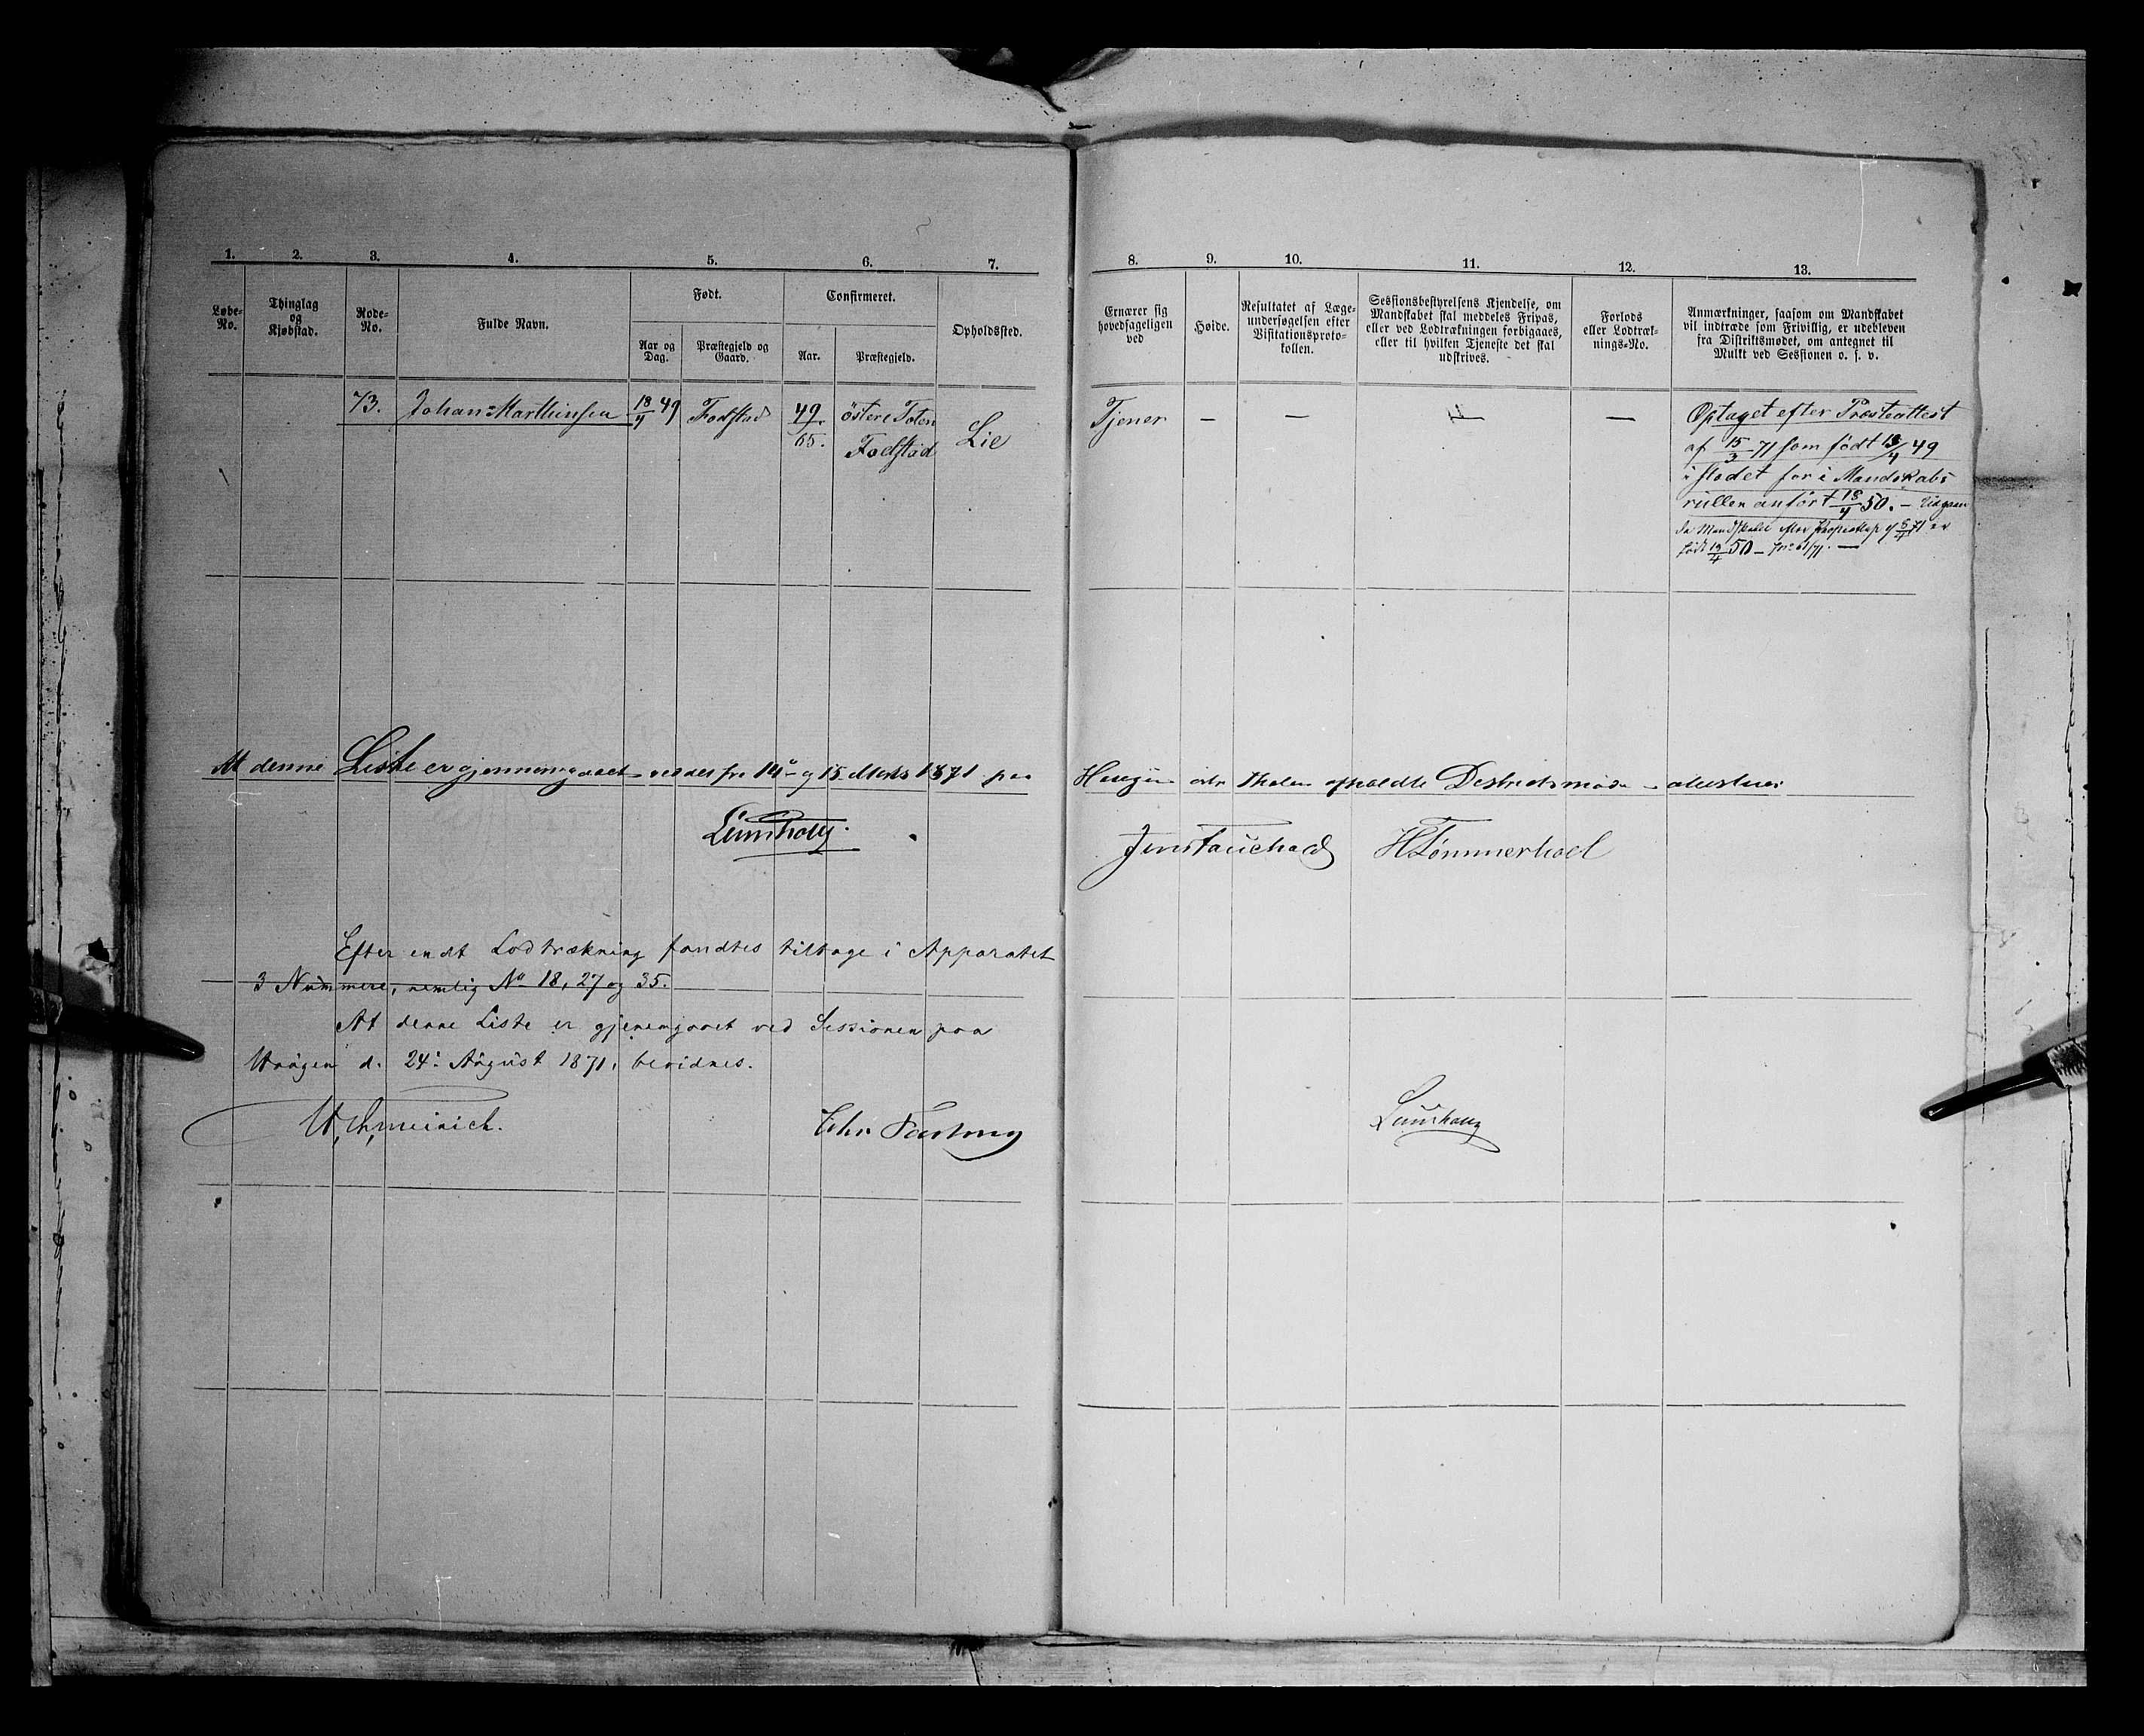 1. 2. 3. 4. 5. 6. 7.
Løbe-No.
Thinglag og Kjøbstad.
Rode-No.
Fulde Navn.
Født.
Aar og Dag.
Præstegjeld og Gaard.
Confirmeret.
Aar.
Præstegjeld.
Opholdssted.
73. Johan Marthinsen 18/4 49 Fodstad 49/65. östere Toten Lie
Fodstad
At denne Liste er gjennemgaaet ved det fra 14de og 15 Marts 1871 paa
Efter endt Lodtrækning fandtes tilbage i Apparatet
3 Nummere, nemlig No 18, 27 og 35.
At denne Liste er gjenemgaaet ved Sessionen paa
d. 24: August 1871, bevidnes.
8. 9. 10. 11. 12. 13.
Ernærer sig
hovedsageligen
ved
Høide.
Resultatet af Læge-
undersøgelsen efter
Visitationsproto-
kollen.
Sessionsbestyrelsens Kjendelse, om
Mandskabet skal meddeles Fripas,
eller ved Lodtrækningen forbigaaes,
eller til hvilken Tjeneste det skal
udskrives.
Forlods
eller Lodtræk-
nings-No.
Anmærkninger, saasom om Mandskabet
vil indtræde som Frivillig, er udebleven
fra Distriktsmødet, om antegnet til
Mulkt ved Sessionen o. s. v.
Tjener — — — Optaget efter Præsteattest
af 15/3 71 som født 18/4 49
istedet for i Mandskabs
rullen anført 18/4 50. — Udgaar
da Mandskabet efter 5/4 71 er
født 18/4 50 —
afholdte Destrictsmøde